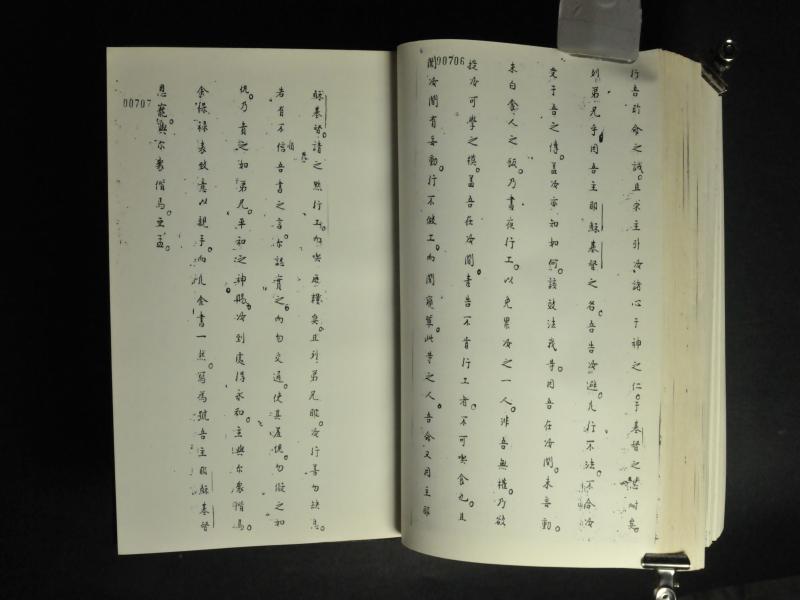 00706
行吾所命之誡。且求主引汝諸心于神之仁。于基督之忍耐矣。
列弟兄乎因吾主耶穌基督之名。吾告汝避凡行不法。不合汝
受于吾之傳蓋汝密知如何。該效法我等。因吾在汝間。未妄動。
未白食人之飯。乃晝夜行工。以免累汝之一人。非吾無權。乃欲
授汝可學之模。蓋吾在汝間。嘗告不肯行工者。不可喫食也。且
聞汝間有妄動。行不做工。而閒窺算。此等之人。吾命又因主耶
00707
穌基督。請之默行工。而喫厥糧矣。且列弟兄歟。汝行善勿缺怠。
若有不信吾書之言。尔誌責之而勿交通。使其羞愧。勿儗之如
仇。乃責之如弟兄。平和之神賜汝到處得永和。主與尔衆偕焉。
余保祿表敬意以親手。而凡余書一然。寫為號吾主耶穌基督
恩寵。與尔衆偕焉亞孟。